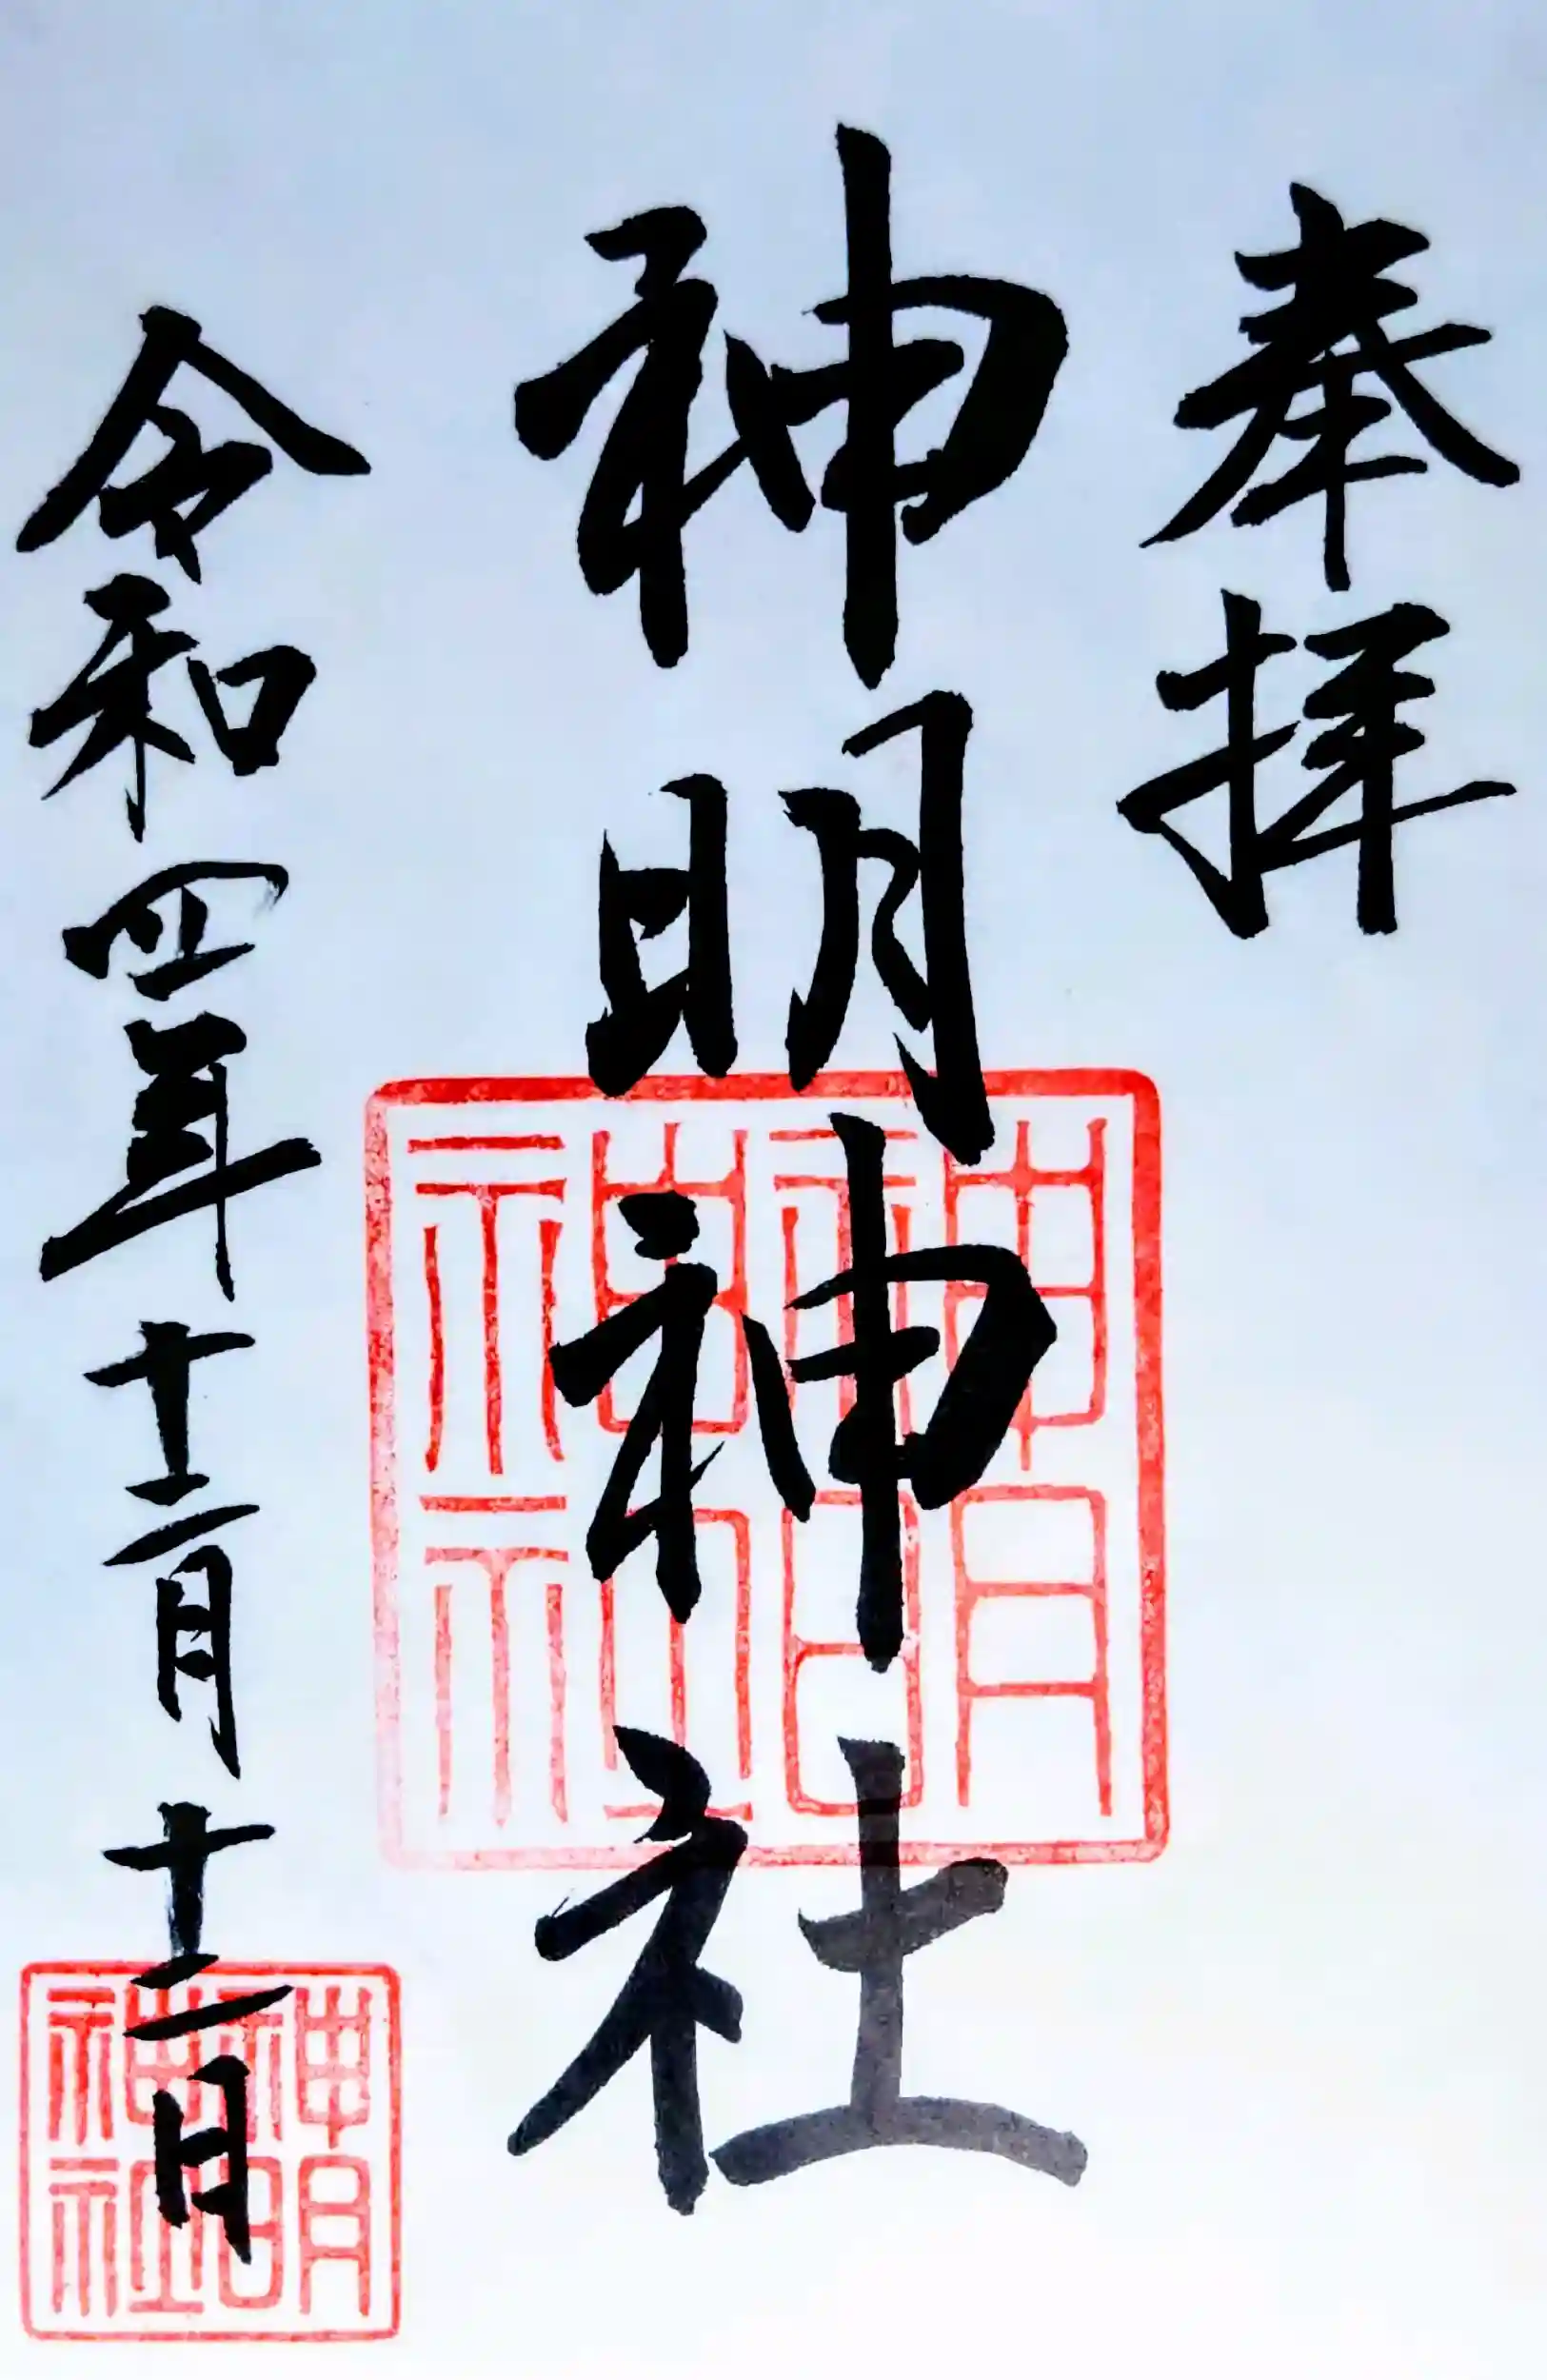 奉拝
神明神社
神明神社
令和四年十二月十二日
神明神社